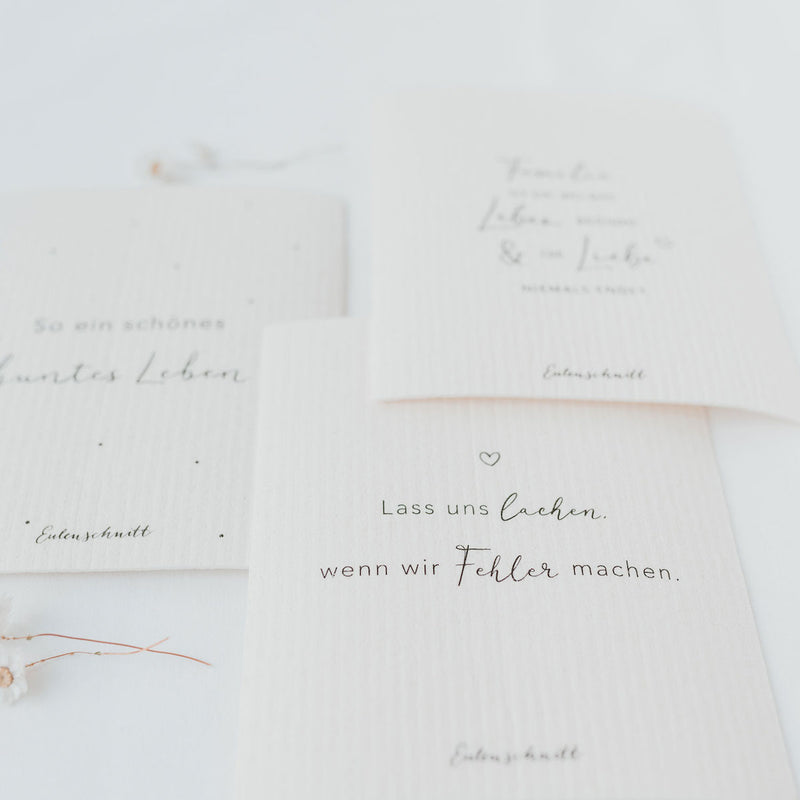 Familie
Leben
& die Liebe
NIEMALS ENDET
Eulenschnitt
So ein schönes
buntes Leben
Eulenschnitt
Lass uns lachen.
wenn wir Fehler machen.
Eulenschnitt